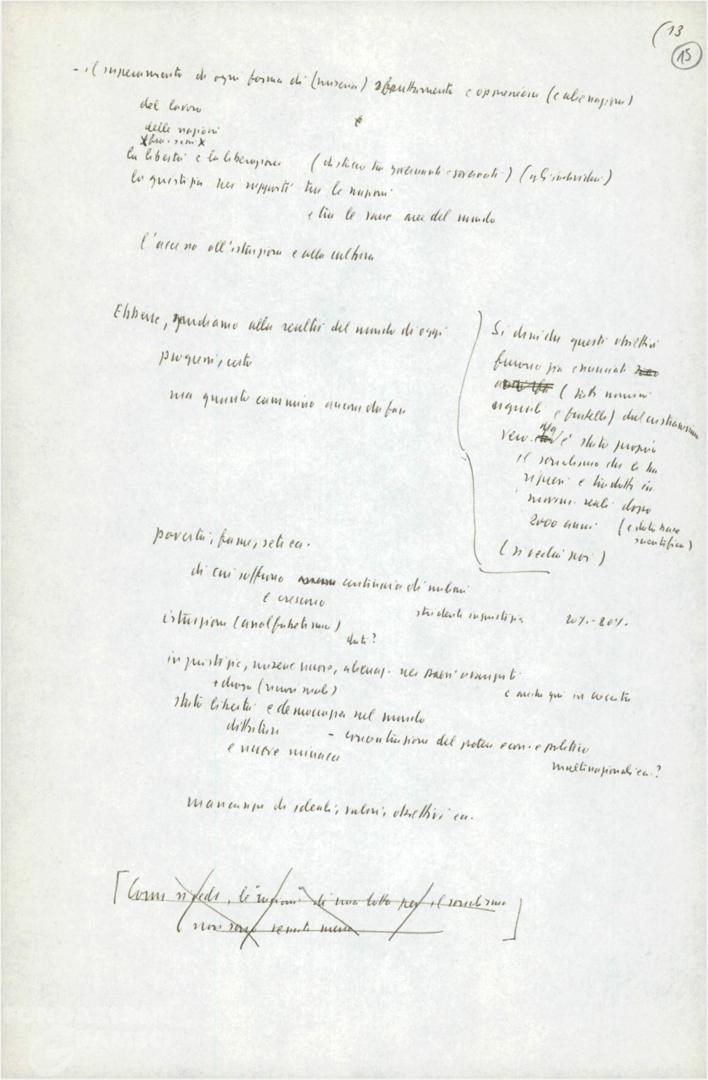 (13
15
- il superamento di ogni forma di (miseria) sfruttamento e oppressione (e alienazione)
del lavoro
delle nazioni
la libertà e la liberazione (distacco tra governanti-governati) (gli individui)
la giustizia nei rapporti tra le nazioni
e tra le varie aree del mondo
l'accesso all'istruzione e alla cultura
Ebbene, guardiamo alla realtà del mondo di oggi
progressi, certo
ma quanto cammino ancora da fare
Si dirà che questi obiettivi
furono già enunciati
(siete uomini
eguali e fratelli) dal cristianesimo
vero. ma è stato proprio
il socialismo che li ha
ripresi e tradotti in
movim. reali dopo
2000 anni (e dato base
scientifica)
(si vedrà poi)
povertà, fame, sete ecc.
di cui soffrono centinaia di milioni
e crescono
stridente ingiustizia 20% - 80%
istruzione (analfabetismo)
dati?
ingiustizie, miserie nuove, alienaz. nei paesi avanzati
+ droga (nuovi mali) e anche qui in crescita
stato libertà e democrazia nel mondo
dittature - concentrazione del potere econ. e politico
e nuove minacce
multinazionali ecc.?
mancanza di ideali, valori, obiettivi ecc.
[Come si vede, le "ragioni" di una lotta per il socialismo
non sono venute meno]
FONDAZIONE
GRAMSCI